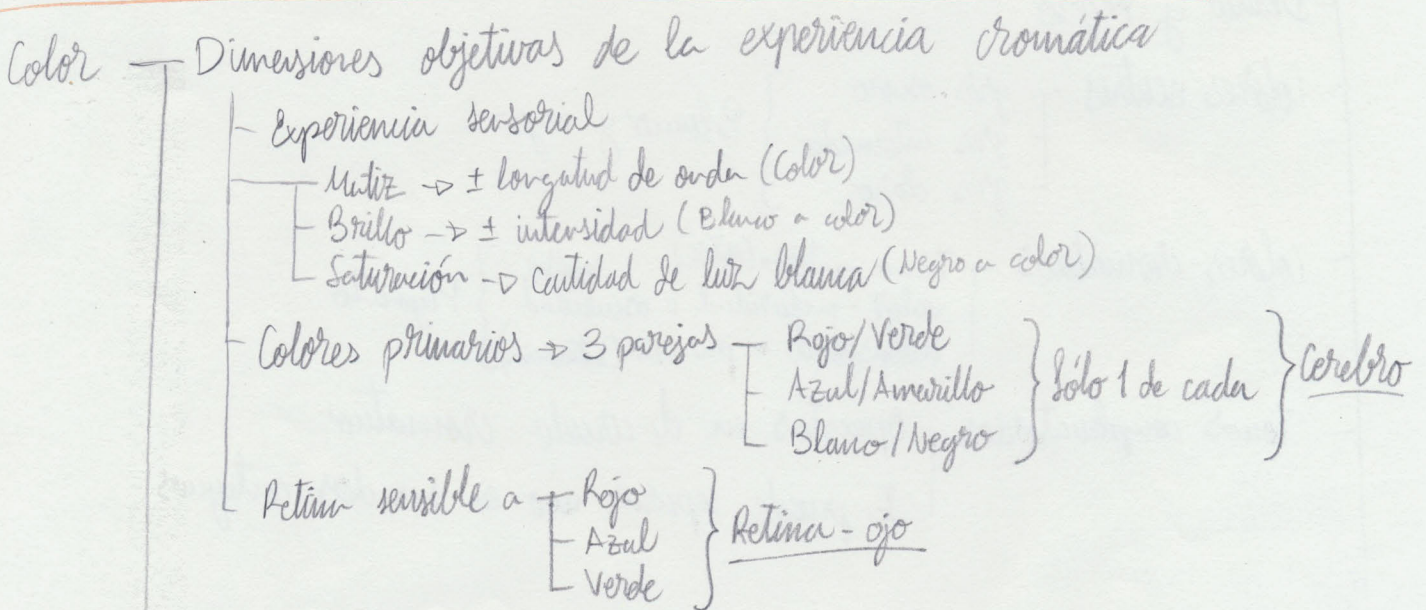 Color — Dimensiones objetivas de la experiencia cromática
Experiencia sensorial
Matiz → ± longutud de onda (Color)
Brillo → ± intensidad (Blanco a color)
Saturación → Cantidad de luz blanca (Negro a color)
Colores primarios → 3 parejas — Rojo/Verde
Azul/Amarillo } Sólo 1 de cada } Cerebro
Blanco/Negro
Retina sensible a — Rojo
Azul } Retina - ojo
Verde